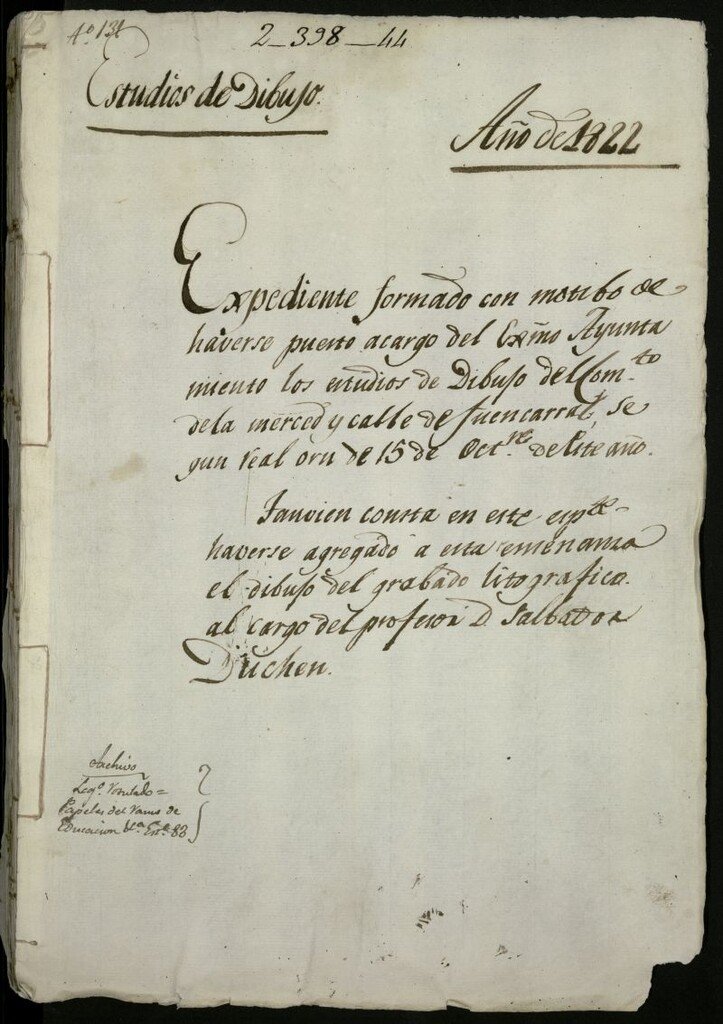 2-398-44
Estudios de Dibujo.
Año de 1822
Expediente formado con motibo de
haverse puesto acargo del Exmo Ayunta
miento los estudios de Dibujo del Com.to
dela merced y calle de fuencarral, se
gun real orn de 15 de Oct.re de este año.
Tanvien consta en este espte
haverse agregado a esta enseñanza
el dibujo del grabado litografico.
al cargo del profesor D Salbador
Duchen.
Archivo
Leg.º Rotulado =
Papeles del Ramo de
Educacion &.a 83